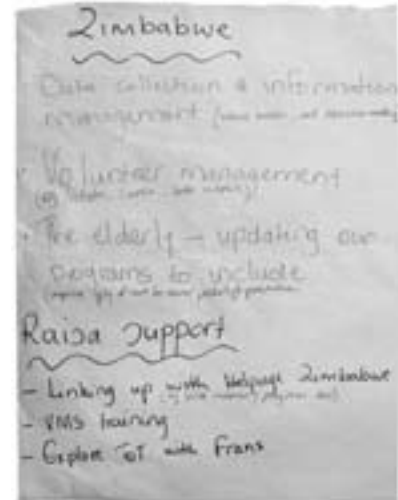 Zimbabwe
Data collection & information
management (
• Volunteer management
• The elderly – updating our
programs to include
Raisa Support
– Linking up with Helpage Zimbabwe
– VMS training
– Explore ToT with Frans